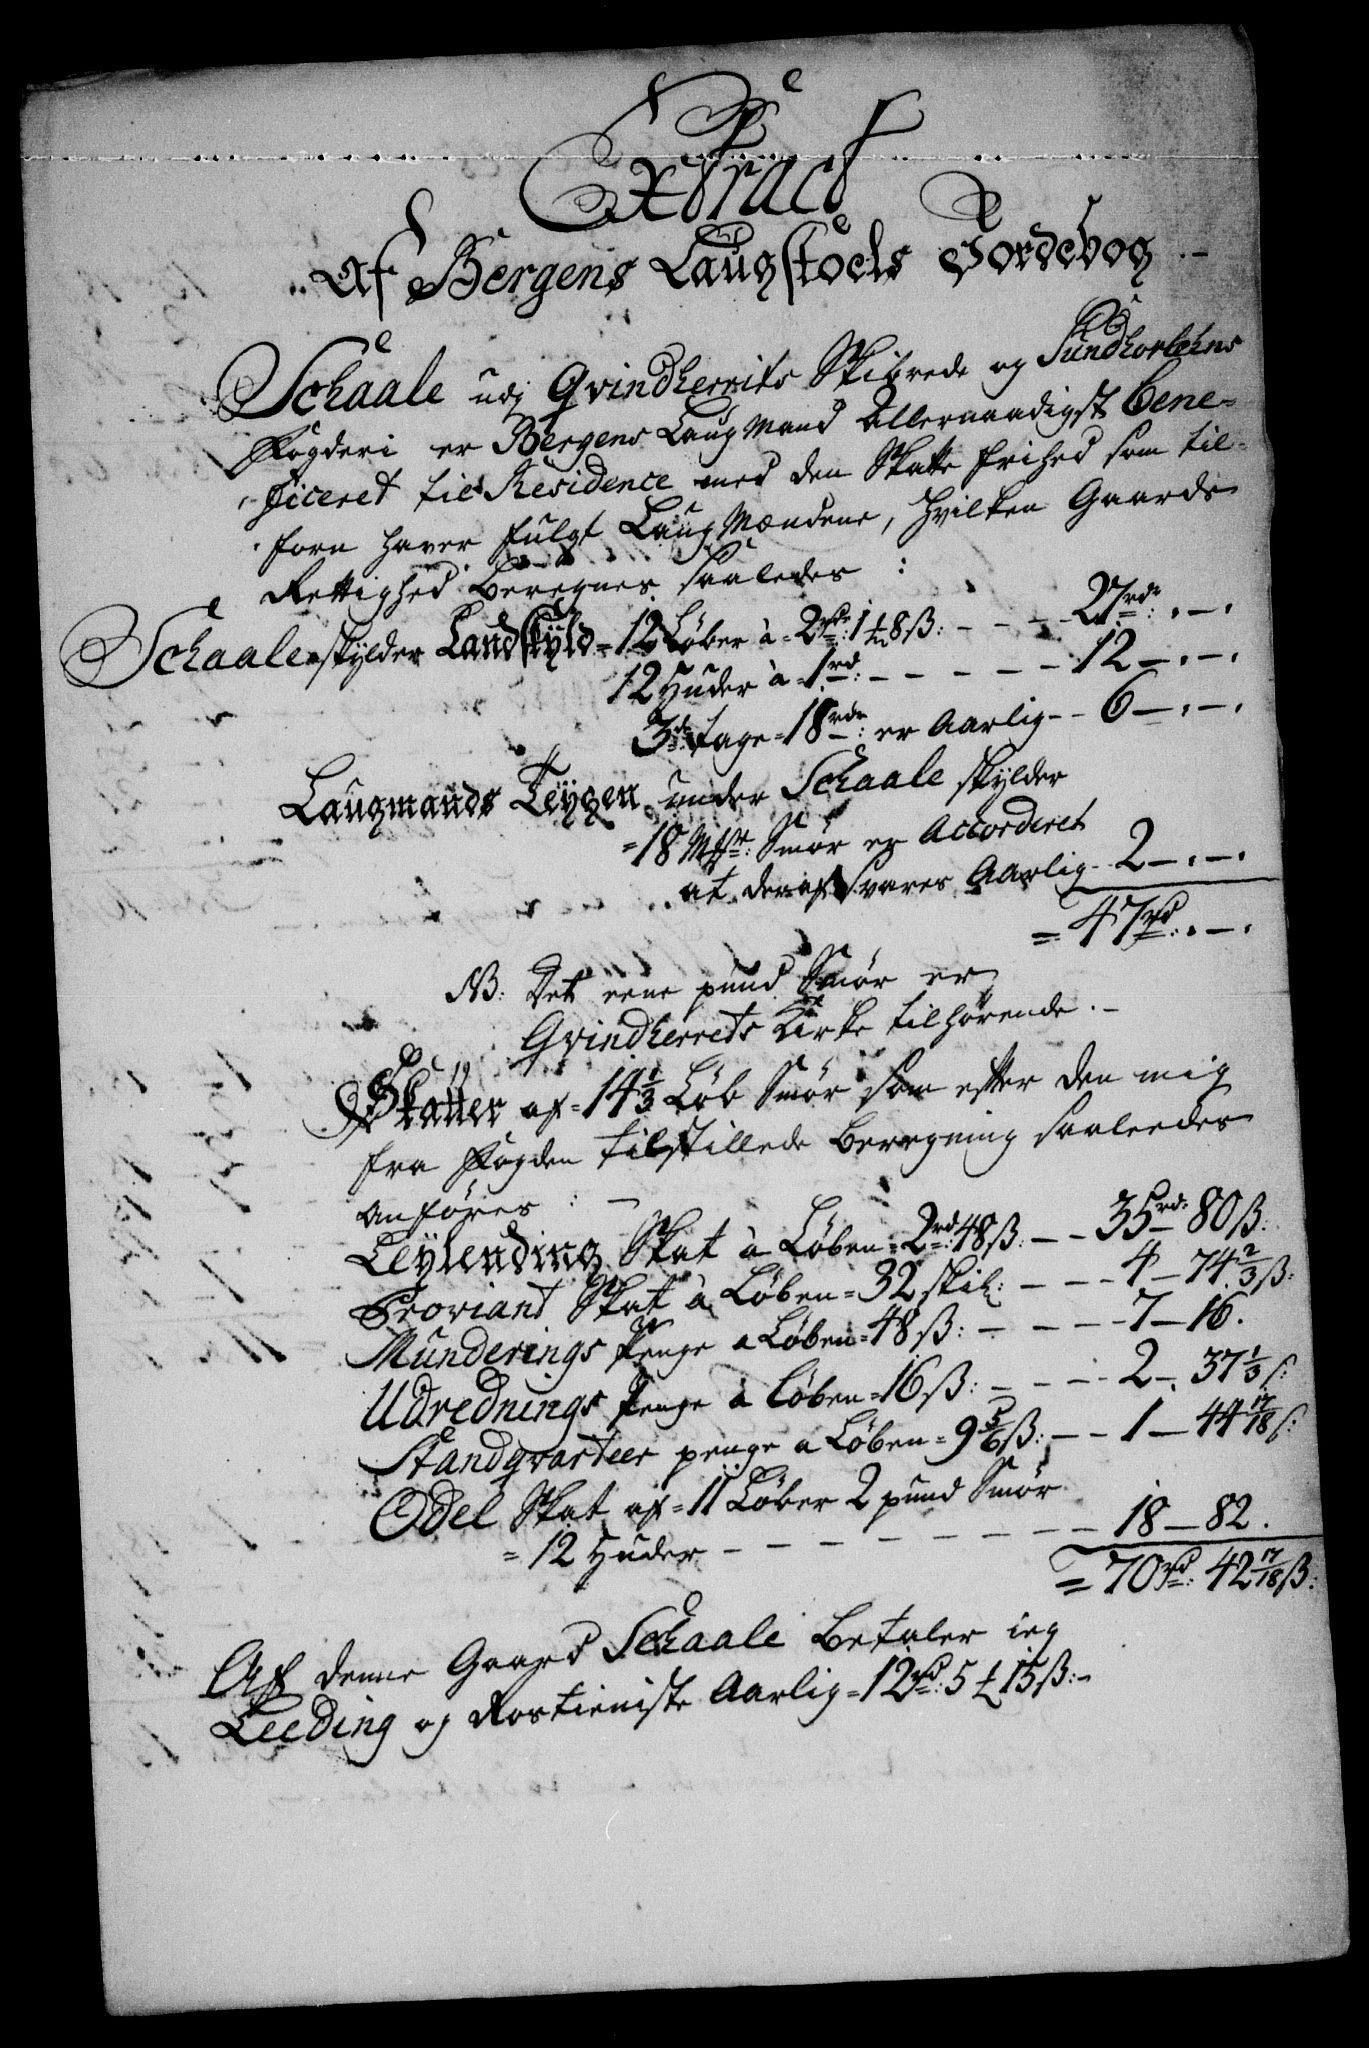 Extract
Af Bergens Laugstoels Jordebog
Schaale udj Qvindherrits Skibrede og Sundhorlehns
Fogderi er Bergens Laug Mand Allernaadigst bene-
ficeret til Residence med den Skatte frihed som til-
forn haver fulgt Laug Mændene, hvilken Gaards
Rettighed beregnes saaledes :
Schaale skylder Landskyld = 12 Løber à = 2 rd: 1 ℔ 8 ß: - - - - 27 rd: . - .
12 Huder à = 1 rd: - - - - - 12 - . - .
3de tage = 18 rd: er Aarlig - - 6 - . - .
Laugmands Teygen under Schaale skylder
= 18 Smør er Accorderet
at deraf Svares Aarlig - 2 - . - .
= 47 rd: . - .
NB: Det eene pund Smør er
Qvindherrets Kirke tilhørende . -
Skatter af = 14 1/3 Løb Smør som efter den mig
fra Fogden tilstillede beregning saaleedes
anføres : -
Leylending Skat à Løben = 2 rd: 48 ß: - - 35 rd: 80 ß:
Proviant Skat à Løben = 32 skil: - - - 4 - 74 2/3 ß:
Munderings penge a Løben = 48 ß: - - - - 7 - 16 .
Udrednings penge à Løben = 16 ß: - - - - 2 - 37 1/3 ß:
Standqvarteer penge a Løben = 9 5/6 ß: - - 1 - 44 17/18 ß:
Odel Skat af = 11 Løber 2 pund Smør
= 12 Huder - - - - - - - - - 18 - 82 .
= 70 rd: 42 17/18 ß:
Af denne Gaard Schaale Betaler ieg
Leeding og Rostieniste Aarlig = 12 rd: 5 ℔ 15 ß: -